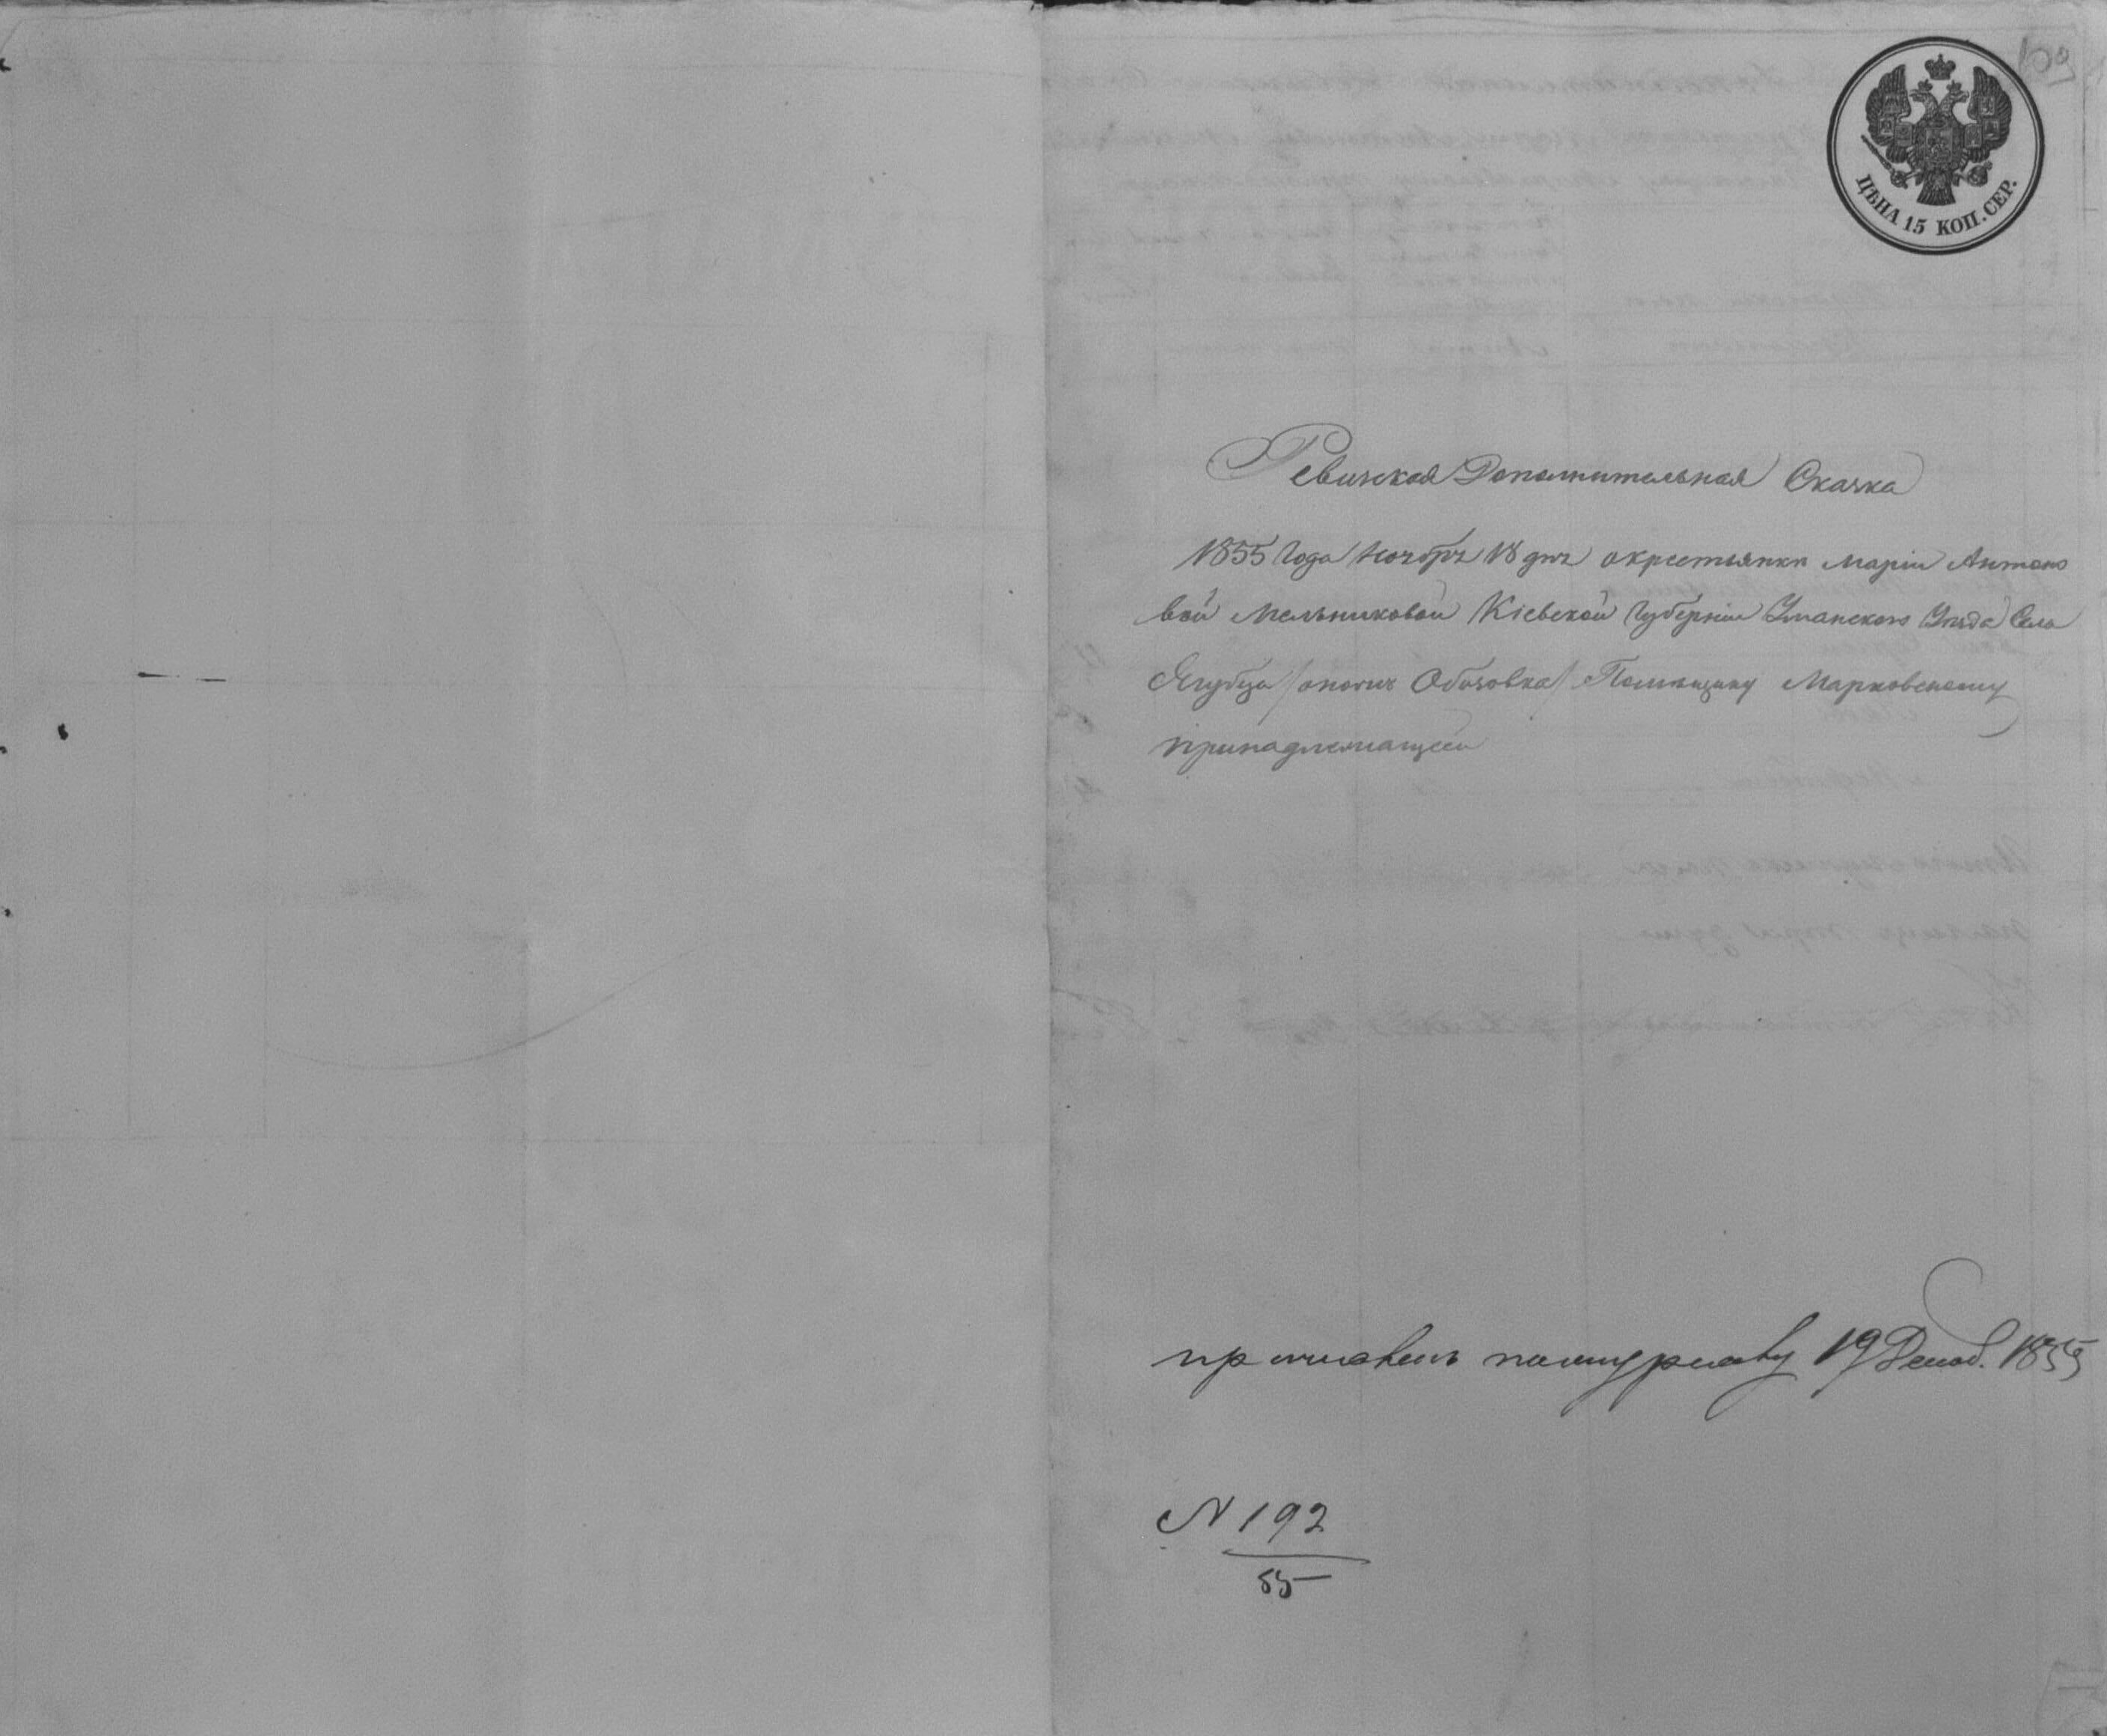 109
ЦѢНА 15 КОП. СЕР.
Ревизская Дополнительная Сказка
1855 Года Ноября 18 дня о крестьянки Маріи Антоно
вой Мельниковой Кіевской Губерніи Уманского Уѣзда Села
Ягубца / Помѣщику Марковскому
принадлежащей
19 Декаб. 1855
N 192
55